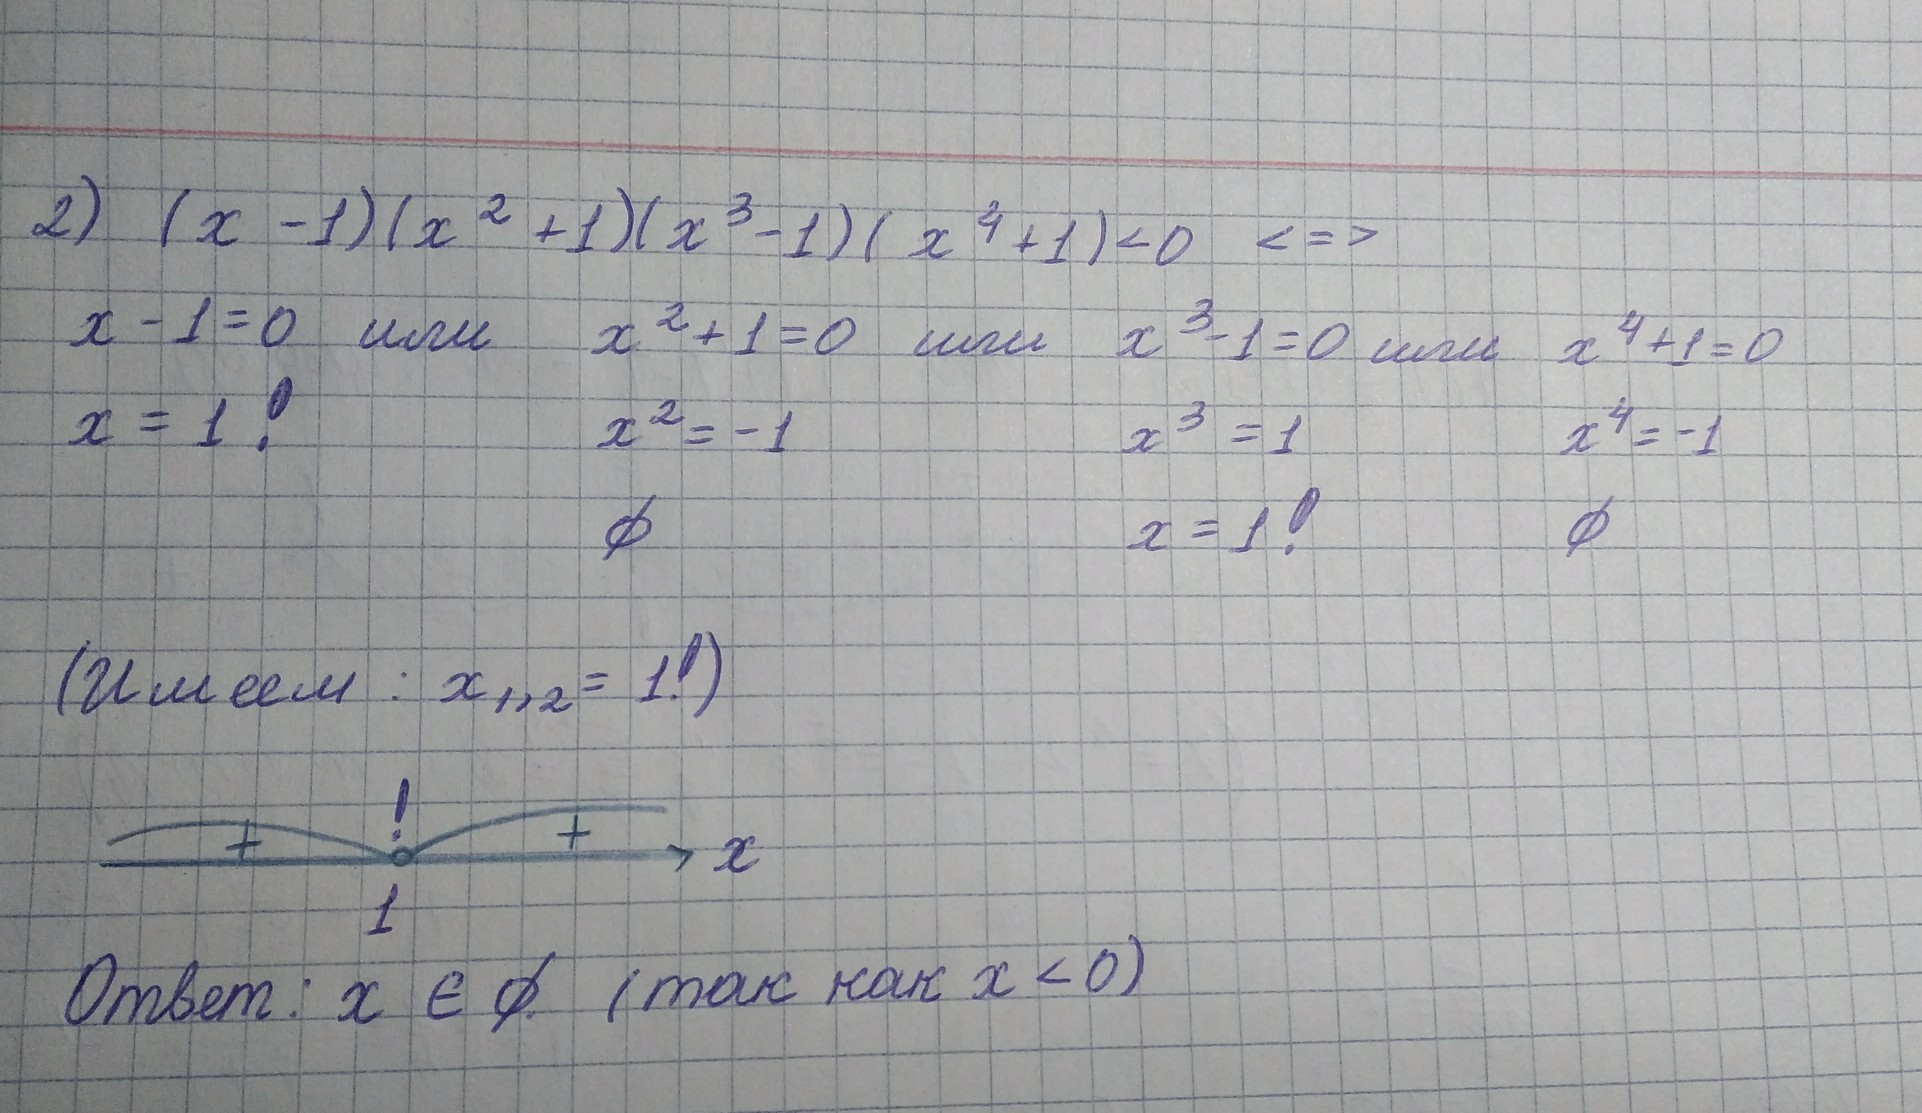 2) (x - 1)(x² + 1)(x³ - 1)(x⁴ + 1) < 0 <=>
x - 1 = 0 или x² + 1 = 0 или x³ - 1 = 0 или x⁴ + 1 = 0
x = 1! x² = -1 x³ = 1 x⁴ = -1
∅ x = 1! ∅
(Имеем : x₁,₂ = 1!)
!
+ + x
1
Ответ: x ∈ ∅. (так как x < 0)